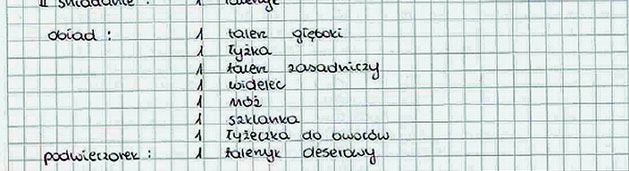 II śniadanie : 1 talerzyk
obiad : 1 talerz głęboki
1 łyżka
1 talerz zasadniczy
1 widelec
1 nóż
1 szklanka
1 łyżeczka do owoców
podwieczorek : 1 talerzyk deserowy